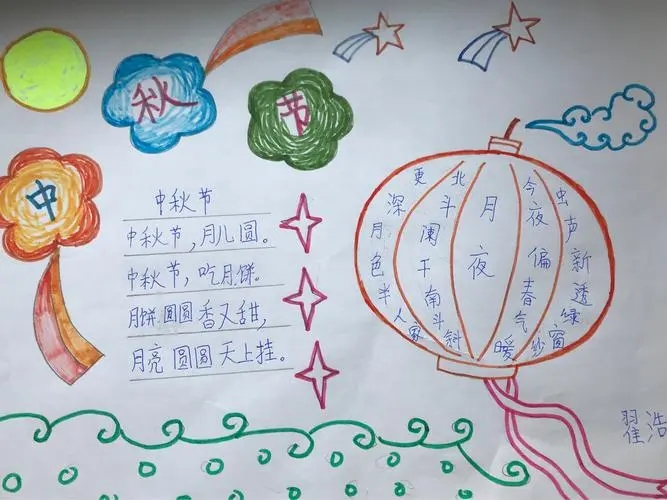 中秋节
中秋节
中秋节,月儿圆。
中秋节,吃月饼。
月饼圆圆香又甜,
月亮圆圆天上挂。
月夜
更深月色半人家
北斗阑干南斗斜
今夜偏春气暖
虫声新透绿窗纱
翟浩